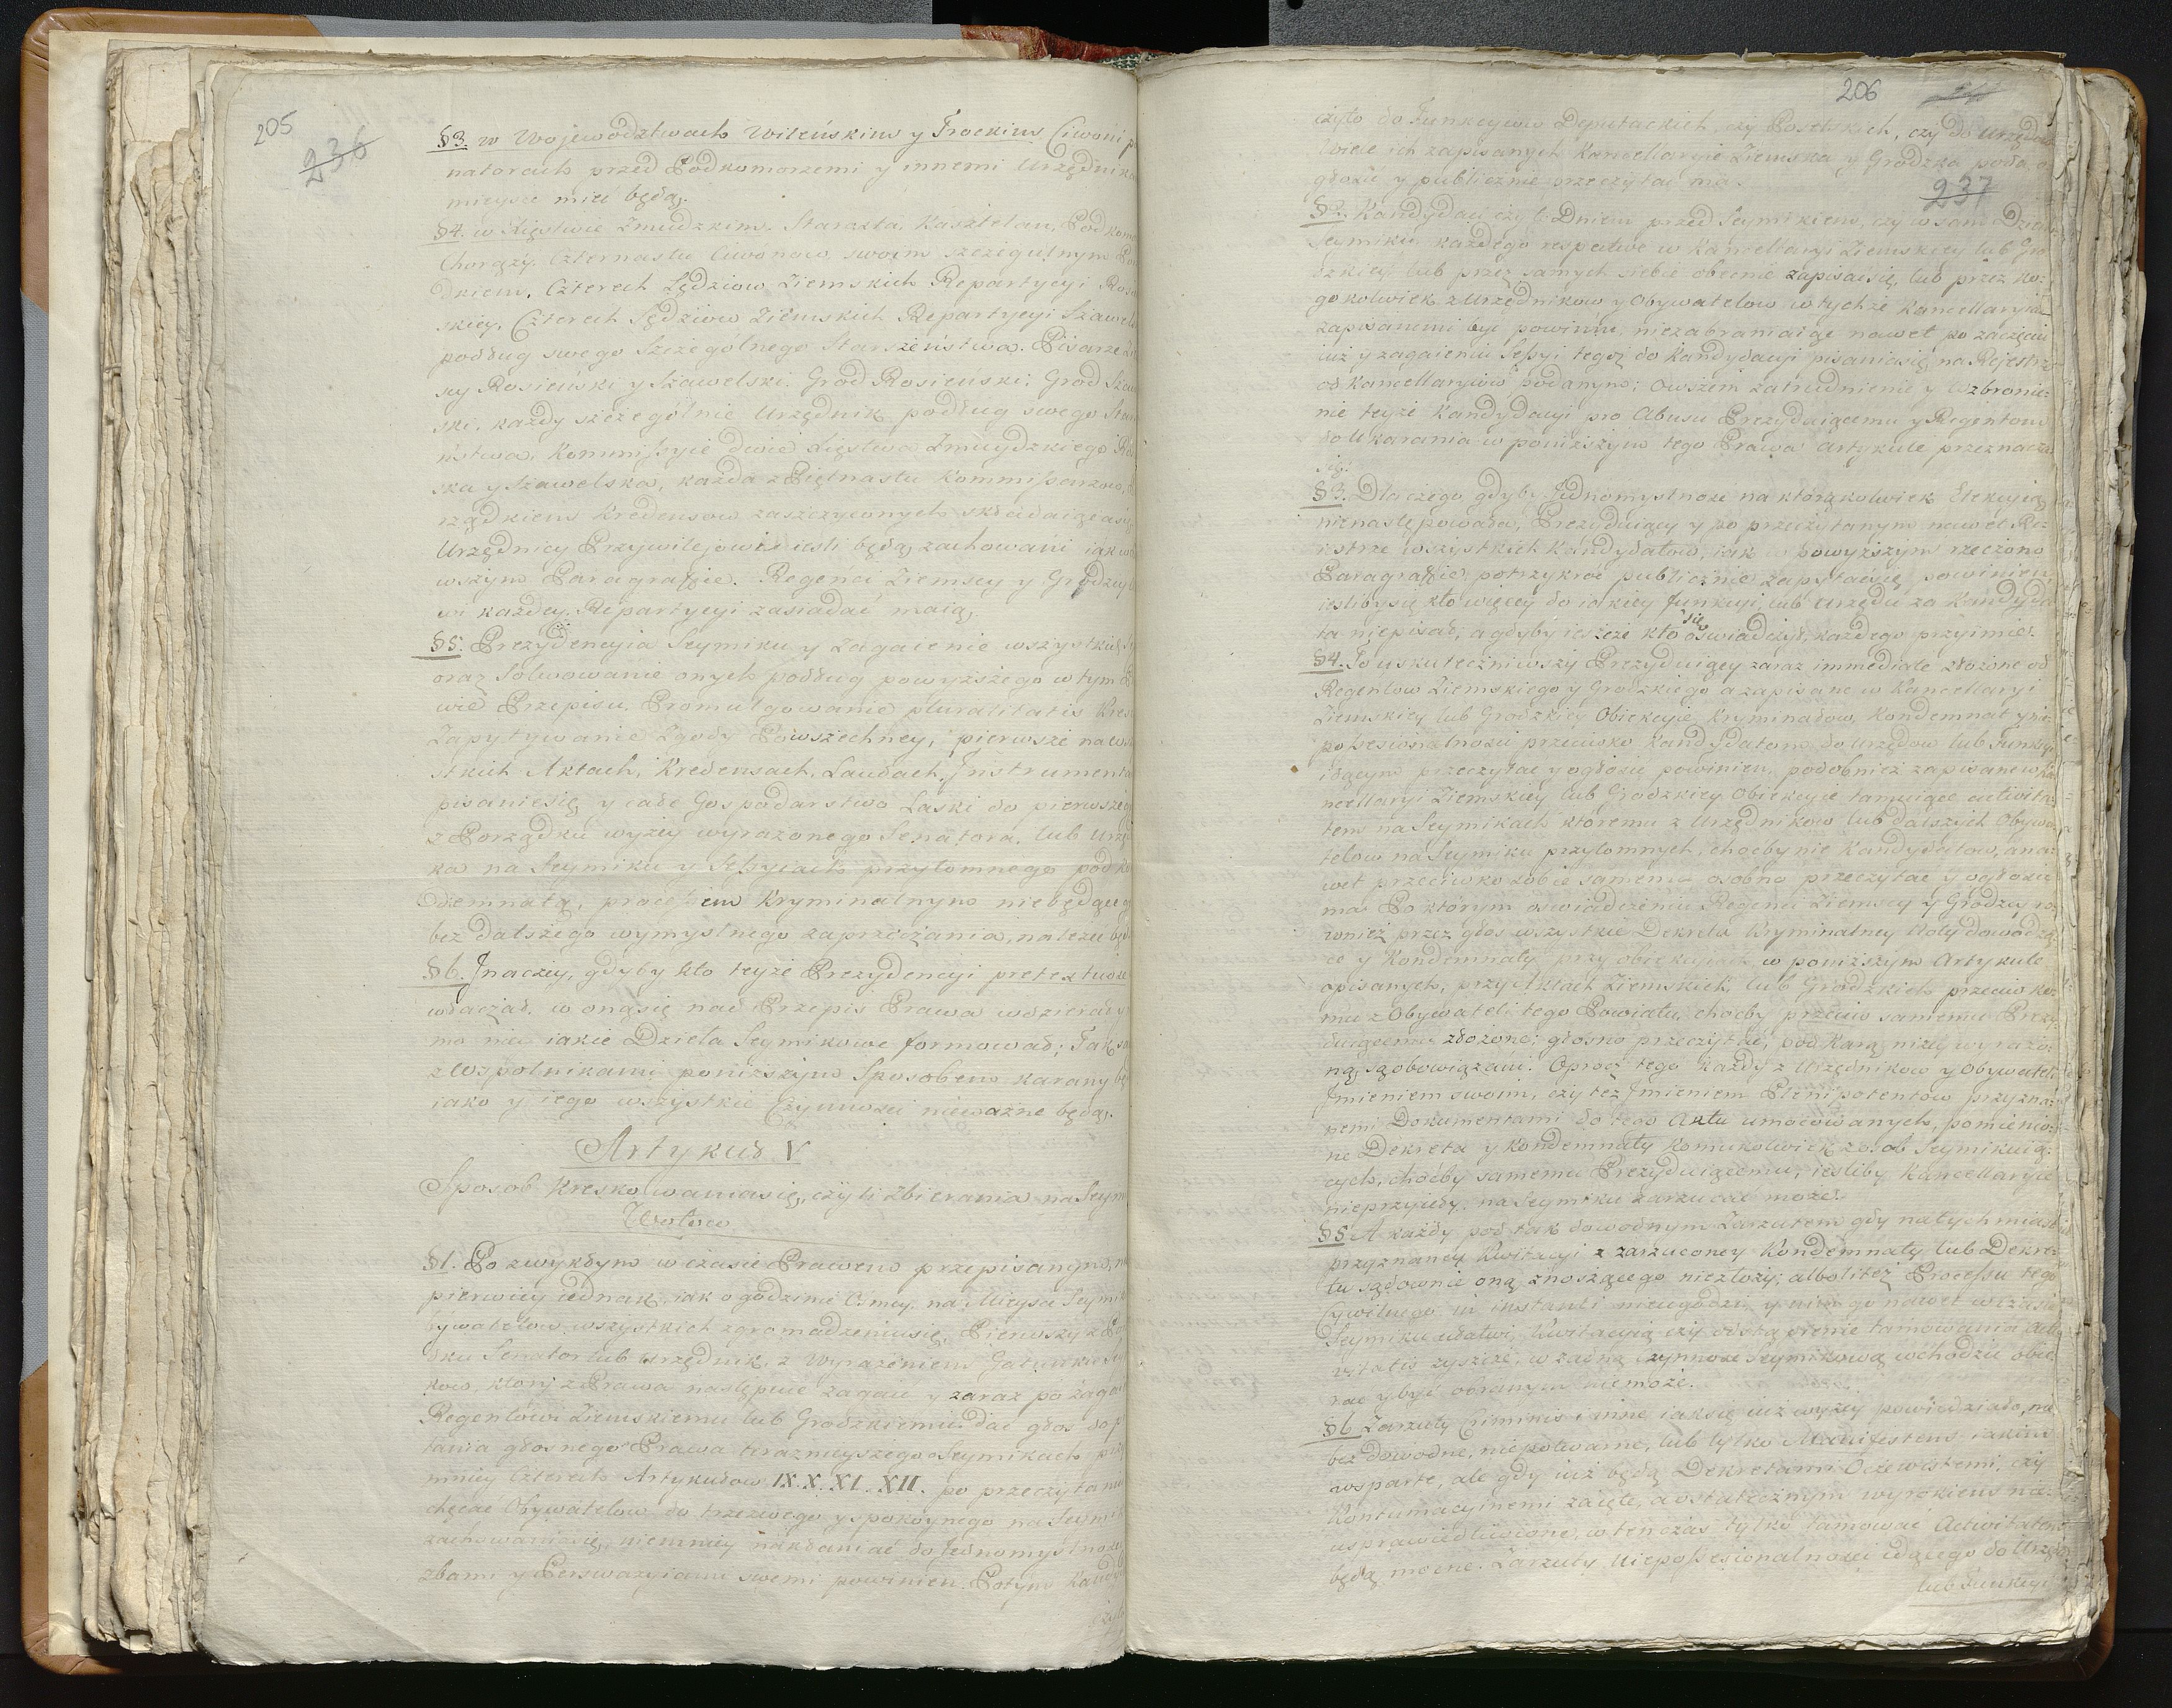 205
236
§3. w Wojewodztwach Wileńskim y Trockim Ciwoni
natorach przed Podkomorzemi y innemi Urzędnika
mieysce mieć będą.
§4. w Xięstwie Zmudzkim. Starosta, Kasztelan, Podkomo
Chorązy. Czternastu Ciwonow, swoim szczegulnym
dkiem, Czterech Sędziow Ziemskich Repartycyi Ros
skiey. Czterech Sędziow Ziemskich Repartycyi Szawel
podług swego Szczegolnego Starszeństwa. Pisarze
scy Rosieński y Szawelski. Grod Rosieński, Grod Szaw
ski, każdy szczegolnie Urzędnik podług swego Star
nstwa, Kommissyie dwie Xięstwa Zmuydzkiego
ska y Szawelska, każda z Piętnastu Kommissarzow,
rządkiem Kredensow zaszczyconych składaiąca się
Urzędnicy Przywilejowi iesli będą zachowani iak
wszym Paragrafie. Regenci Ziemscy y Grodzcy
w każdey Repartycyi zasiadać maią.
§5. Prezydencyia Seymiku y Zagaienie wszystkich
oraz Solwowanie onych podług powyższego w tym
wie Przepisu, Promulgowanie pluralitatis Kres
Zapytywanie Zgody Powszechney, pierwsze na w
stkich Aktach, Kredensach, Laudach, Instrumenta
pisanie się, y całe Gospodarstwo Laski do pierwszeg
z Porządku wyżey wyrażonego Senatora, lub Urzę
ka na Seymiku y Sessyiach przytomnego pod ko
ndemnatą, processem Kryminalnym niebędącego
bez dalszego wymyslnego zaprzeczania, należeć bę
§6. Inaczey, gdyby kto teyże Prezydencyi pretextu
właczał, w oną się nad Przepis Prawa wdzierał y
mo nie iakie Dzieła Seymikowe formował; Tak
z Wspolnikami poniższym Sposobem karany
iako y iego wszystkie Czynnosci nieważne będą.
Artykuł V
Sposob Kreskowania się, czyli Zbierania na Seym
Wotow
§1. Po zwykłym w czasie Prawem przepisanym,
pierwiey iednak, iak o godzinie Osmey, na Mieysce Seymik
bywatelow wszystkich zgromadzeniu się, Pierwszy z Po
dku Senator lub Urzędnik, z Wyrażeniem Gatunku Sey
kow, ktory z Prawa nastąpić zagaić y zaraz po zaga
Regentowi Ziemskiemu lub Grodzkiemu dać głos do
tania głosnego Prawa teraznieyszego o Seymikach
mniey Czterech Artykułow IX. X. XI. XII. po przeczytaniu
chęcać Obywatelow do trzezwego y spokoynego na Seymik
zachowania się, niemniey nakłaniać do Jednomyslnosci
zbami y Perswazyiami swemi powinien. Potym Kandy
czyli
206
237
czyto do Funkcyiow Deputackich, czy Poselskich, czy do Urzędow
wiele ich zapisanych Kancellaryie Ziemska y Grodzka poda o
głosić y publicznie przeczytać ma.
§2. Kandydaci czy to Dniem przed Seymikiem, czy w sam Dzień
Seymiku każdego respective w Kancellaryi Ziemskiey lub Gro
dzkiey lub przez samych siebie obecnie zapisać się, lub przez ko-
gokolwiek z Urzędnikow y Obywatelow w tychże Kancellaryia
zapisanemi być powinni, niezabraniaiąc nawet po zaczęciu
iuż y zagaieniu Sessyi tegoż do Kandydacyi pisania się na Rejestrze
od Kancellaryiow podanym; Owszem zatrudnienie y Wzbronie-
nie teyże Kandydacyi pro Abusu Prezyduiącemu y Regentom
do Ukarania w poniższym tego Prawa Artykule przeznacza
się.
§3. Dla czego gdyby Jednomyslnosc na ktorążkolwiek Elekcyią
nienastępowała, Prezyduiący y po przeczytanym nawet Re-
iestrze wszystkich Kandydatow, iak w powyższym rzeczono
Paragrafie, potrzykroć publicznie zapytać się powinien,
iesliby się kto więcey do iakiey funkcyi, lub Urzędu za Kandyda
ta niepisał; a gdyby ieszcze kto się oswiadczył, każdego przyimie.
§4. To uskuteczniwszy Prezyduiący zaraz immediate złożone od
Regentow Ziemskiego y Grodzkiego a zapisane w Kancellaryi
Ziemskiey lub Grodzkiey Obiekcyie, Kryminałow, Kondemnat y nie
possesionalnosci przeciwko Kandydatom do Urzędow lub Funkcyi
idącym przeczytać y ogłosić powinien, podobnież zapisane w Ka
ncellaryi Ziemskiey lub Grodzkiey Obiekcyie tamuiące activita-
tem na Seymikach ktoremu z Urzędnikow lub dalszych Obywa
telow na Seymiku przytomnych, choćby nie Kandydatow, a na-
wet przeciwko sobie samemu osobno przeczytać y ogłosić
ma. Po ktorym oswiadczeniu Regenci Ziemscy y Grodzcy ro
wnież przez głos wszystkie Dekreta Kryminalney Noty dowodzą
ce y Kondemnaty przy obiekcyiach w poniższym Artykule
opisanych, przy Aktach Ziemskich, lub Grodzkich przeciw ko
mu z Obywateli tego Powiatu, choćby przeciw samemu Prezy
duiącemu złożone; głosno przeczytać, pod Karą niżey wyrażo
ną, są obowiązani. Oprocz tego każdy z Urzędnikow y Obywateli
Imieniem swoim, czy też Imieniem Plenipotentow przyzna-
nemi Dokumentami do tego Aktu umocowanych, pomienio-
ne Dekreta y Kondemnaty komukolwiek z osob Seymikuią-
cych, choćby samemu Prezyduiącemu, iesliby Kancellaryie
nieprzyięły, na Seymiku zarzucać może.
§5. A każdy pod tak dowodnym Zarzutem gdy natychmiast
przyznaney Kwitacyi z zarzuconey Kondemnaty lub Dekre-
tu sądownie oną znoszącego niezłoży, albo liteż Processu tego
Cywilnego in instanti nieugodzi, y nim go nawet w czasie
Seymiku ułatwi, Kwitacyią czy odstąpienie tamowania Acti
vitatis zyszcze, w żadną Czynnosc Seymikową wchodzić obie
rać y być obranym niemoże.
§6. Zarzuty Criminis i inne iak się iuż wyżey powiedziało, nie
bezdowodne, niepotwarne, lub tylko Manifestem iakim
wsparte, ale gdy iuż będą Dekretami Oczewistemi, czy
Kontumacyinemi zaięte, a ostatecznym wyrokiem nie-
usprawiedliwione, w ten czas tylko tamować Activitatem
będą mocne. Zarzuty Niepossesionalnosci idącego do Urzędu
lub Funkcyi